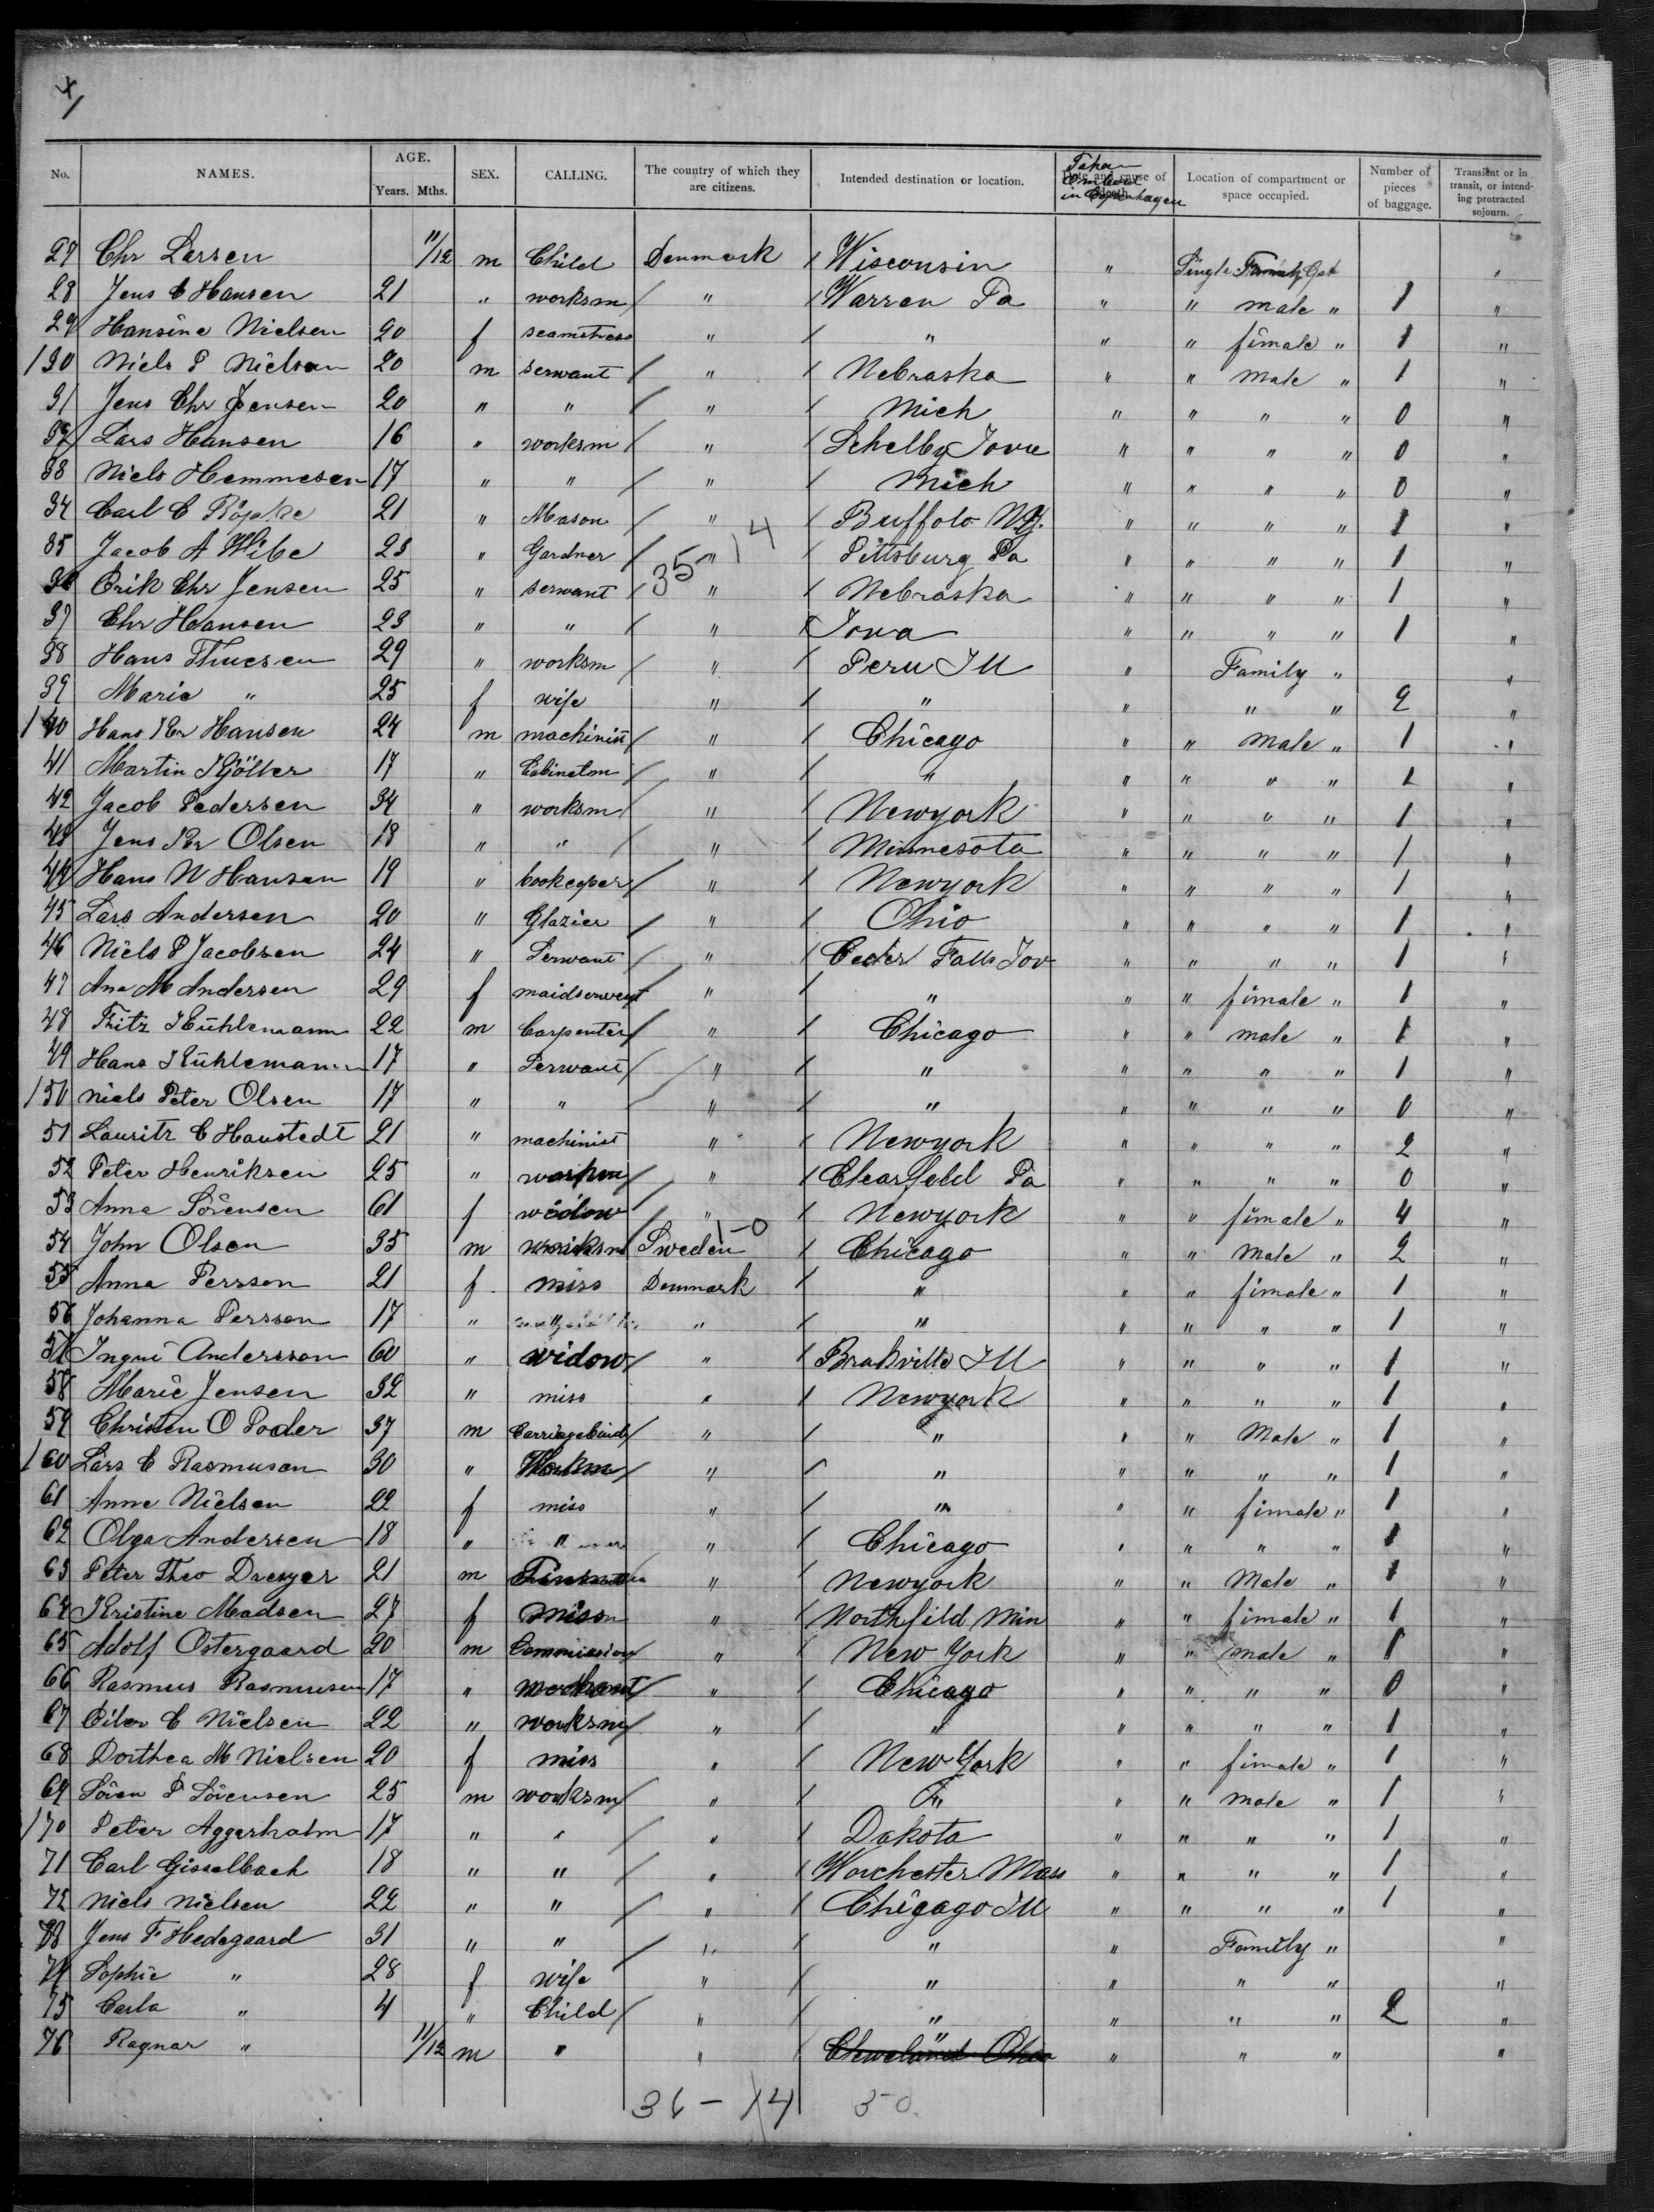 4/
No. NAMES. AGE. Years. Mths. SEX. CALLING. The country of which they are citizens. Intended destination or location. Date and cause of death. Taken on board in Copenhagen Location of compartment or space occupied. Number of pieces of baggage. Transient or in transit, or intending protracted sojourn.
27 Chr Larsen 11/12 m Child Denmark Wisconsin " Single Family Opt "
28 Jens C Hansen 21 " worksm " Warren Pa " " male " 1 "
29 Hansine Nielsen 20 f seamstress " " " " fimale " 1 "
130 Niels P Nielsen 20 m serwant " Nebraska " " male " 1 "
31 Jens Chr Jensen 20 " " " Mich " " " " 0 "
32 Lars Hansen 16 " worksm " Schelby Iowe " " " " 0 "
33 Niels Hemmesen 17 " " " Mich " " " " 0 "
34 Carl C Röpke 21 " Mason " Buffolo NY. " " " " 1 "
35 Jacob A Wibe 23 " Gardner " Pittsburg Pa " " " " 1 "
36 Erik Chr Jensen 25 " serwant " Nebraska " " " " 1 "
37 Chr Hansen 23 " " " Iowa " " " " 1 "
38 Hans Thuesen 29 " worksm " Peru Ill " Family " "
39 Marie " 25 f wife " " " " " 2 "
140 Hans Kr Hansen 24 m machinist " Chicago " " male " 1 "
41 Martin Kjöller 17 " Cabinetm " " " " " " 1 "
42 Jacob Pedersen 34 " worksm " Newyork " " " " 1 "
43 Jens Kr Olsen 18 " " " Minnesota " " " " 1 "
44 Hans N Hansen 19 " bookeeper " Newyork " " " " 1 "
45 Lars Andersen 20 " Glazier " Ohio " " " " 1 "
46 Niels P Jacobsen 24 " Serwant " Ceder Falls Iov " " " " 1 "
47 Ana M Andersen 29 f maidserwent " " " " fimale " 1 "
48 Fritz Kühlemann 22 m Carpenter " Chicago " " male " 1 "
49 Hans Kühlemann 17 " Serwant " " " " " " 1 "
150 Niels Peter Olsen 17 " " " " " " " " 0 "
51 Lauritz C Haustedt 21 " machinist " Newyork " " " " 2 "
52 Peter Henriksen 25 " " Clearfield Pa " " " " 0 "
53 Anna Sörensen 61 f widow " Newyork " " fimale " 4 "
54 John Olsen 35 m worksm Sweden Chicago " " male " 2 "
55 Anna Persson 21 f miss Denmark " " " fimale " 1 "
56 Johanna Persson 17 " " " " " " " " 1 "
57 Ingri Andersson 60 " widow " Brakville Ill " " " " 1 "
58 Marie Jensen 32 " miss " Newyork " " " " 1 "
59 Christen O Poder 37 m " " " " Male " 1 "
160 Lars C Rasmusen 30 " " " " " " " 1 "
61 Anne Nielsen 22 f miss " " " " fimale " 1 "
62 Olga Andersen 18 " " " Chicago " " " " 1 "
63 Peter Theo Dreyer 21 m " Newyork " " Male " 1 "
64 Kristine Madsen 27 f miss " Northfild Min " " fimale " 1 "
65 Adolf Ostergaard 20 m Commission " New York " " male " 1 "
66 Rasmus Rasmusen 17 " " Chicago " " " " 0 "
67 C Nielsen 22 " worksm " " " " " " 1 "
68 Dorthea M Nielsen 20 f miss " New York " " fimale " 1 "
69 Sören P Sörensen 25 m worksm " " " " male " 1 "
170 Peter Aggerholm 17 " " " Dakota " " " " 1 "
71 Carl Gisselbach 18 " " " Worchester Mass " " " " 1 "
72 Niels Nielsen 22 " " " Chigago Ill " " " " 1 "
73 Jens F Hedegaard 31 " " " " " Family " "
74 Sophie " 28 f wife " " " " " "
75 Carla " 4 " Child " " " " " 2 "
76 Ragnar " 11/12 m " " " Cleveland Ohio " " " "
35 14
1-0
36 - 14 3-0